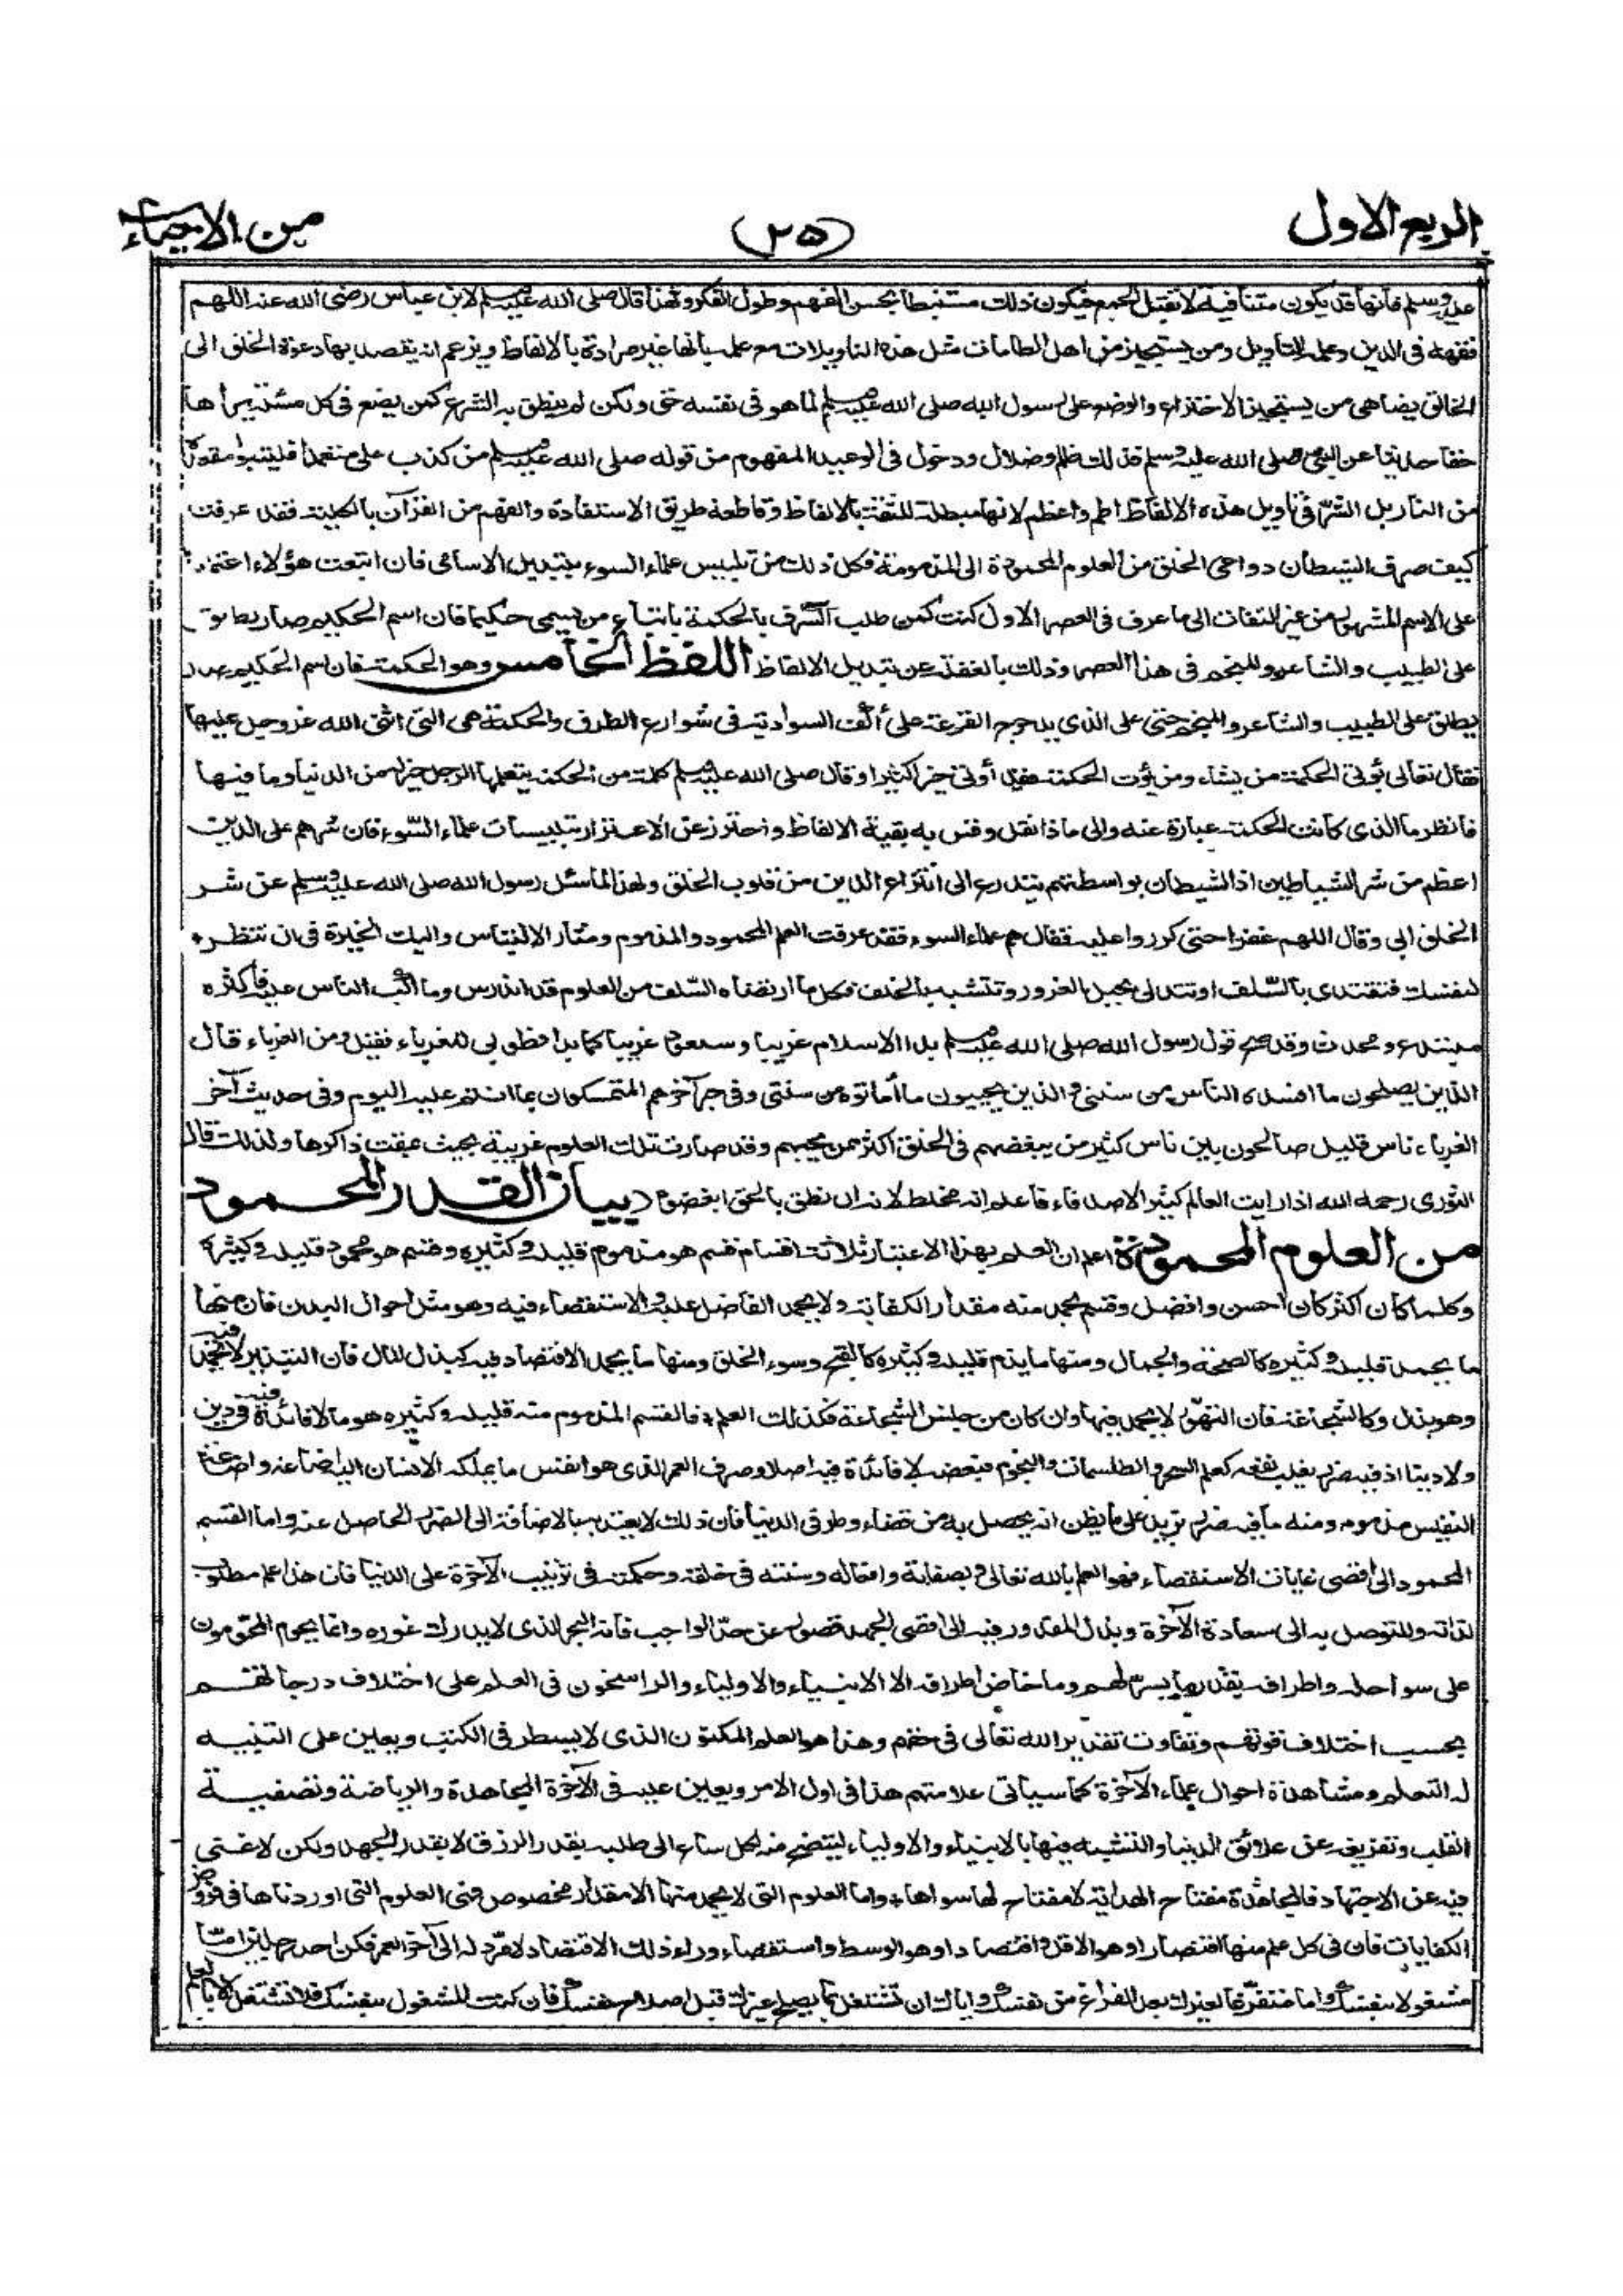 الربع الاول
(٢٥)
من الاحياء
عليه وسلم فانها قد يكون متنافية لا تقبل الجمع فيكون ذلك مستنبطا بحسن الفهم وطول الفكر ولهذا قال صلى الله عليه وسلم لابن عباس رضى الله عنه اللهم
فقهه فى الدين وعلمه التأويل ومن يستجيز من اهل الطامات مثل هذه التأويلات مع علمه بأنها غير مرادة بالالفاظ ويزعم انه يقصد بها دعوة الخلق الى
الخالق يضاهى من يستجيز الاختراع والوضع على رسول الله صلى الله عليه وسلم لما هو فى نفسه حق ولكن لم ينطق به الشرع كمن يضع فى كل مسئلة يراها
حقا حديثا عن النبى صلى الله عليه وسلم فذلك ظلم وضلال ودخول فى الوعيد المفهوم من قوله صلى الله عليه وسلم من كذب على متعمدا فليتبوأ مقعده
من النار بل الشر فى تأويل هذه الالفاظ اطم واعظم لانها مبطلة للثقة بالالفاظ وقاطعة طريق الاستفادة والفهم من القرآن بالكلية فقد عرفت
كيف صرف الشيطان دواعى الخلق من العلوم المحمودة الى المذمومة فكل ذلك من تلبيس علماء السوء بتبديل الاسامى فان اتبعت هؤلاء اعتمادا
على الاسم المشهور من غير التفات الى ما عرف فى العصر الاول كنت كمن طلب الشرف بالحكمة باتباع من يسمى حكيما فان اسم الحكيم صار يطلق
على الطبيب والشاعر والمنجم فى هذا العصر وذلك بالغفلة عن تبديل الالفاظ اللفظ الخامس وهو الحكمة فان اسم الحكيم صار
يطلق على الطبيب والشاعر والمنجم حتى على الذى يدحرج القرعة على أكف السوادية فى شوارع الطرق والحكمة هى التى اثنى الله عز وجل عليها
فقال تعالى يؤتى الحكمة من يشاء ومن يؤت الحكمة فقد أوتى خيرا كثيرا وقال صلى الله عليه وسلم كلمة من الحكمة يتعلمها الرجل خير له من الدنيا وما فيها
فانظر ما الذى كانت الحكمة عبارة عنه والى ماذا نقل وقس به بقية الالفاظ واحترز عن الاغترار بتلبيسات علماء السّوء فان شرهم على الدين
اعظم من شر الشياطين اذ الشيطان بواسطتهم يتدرع الى انتزاع الدين من قلوب الخلق ولهذا لما سئل رسول الله صلى الله عليه وسلم عن شر
الخلق ابى وقال اللهم غفرا حتى كرروا عليه فقال هم علماء السوء فقد عرفت العلم المحمود والمذموم ومثار الالتباس واليك الخيرة فى ان تنظر
لنفسك فتقتدى بالسّلف او تتدلى بحبل الغرور وتتشبه بالخلف فكل ما ارتضاه السّلف من العلوم قد اندرس وما اكب الناس عليه فأكثره
مبتدع ومحدث وقد صح قول رسول الله صلى الله عليه وسلم بدا الاسلام غريبا وسيعود غريبا كما بدا فطوبى للغرباء فقيل ومن الغرباء قال
الذين يصلحون ما افسده الناس من سنتى والذين يحييون ما أماتوه من سنتى وفى خبر آخر هم المتمسكون بما انتم عليه اليوم وفى حديث آخر
الغرباء ناس قليل صالحون بين ناس كثير من يبغضهم فى الخلق اكثر ممن يحبهم وقد صارت تلك العلوم غريبة بحيث يمقت ذاكرها ولذلك قال
الثورى رحمه الله اذا رايت العالم كثير الاصدقاء فاعلم انه مخلط لانه ان نطق بالحق ابغضوه بيان القدر المحمود
من العلوم المحمودة اعلم ان العلم بهذا الاعتبار ثلاثة اقسام قسم هو مذموم قليله وكثيره وقسم هو محمود قليله وكثيره
وكلما كان اكثر كان احسن وافضل وقسم يحمد منه مقدار الكفاية ولا يحمد الفاضل عليه والاستقصاء فيه وهو مثل احوال البدن فان منها
ما يحمد قليله وكثيره كالصحة والجمال ومنها ما يذم قليله وكثيره كالقبح وسوء الخلق ومنها ما يحمد الاقتصاد فيه كبذل المال فان التبذير لا يحمد فيه
وهو بذل وكالشجاعة فان التهوّر لا يحمد فيها وان كان من جنس الشجاعة فكذلك العلم فالقسم المذموم منه قليله وكثيره هو ما لا فائدة فيه فى دين
ولا دنيا اذ فيه ضرر يغلب نفعه كعلم السحر والطلسمات والنجوم فبعضه لا فائدة فيه اصلا وصرف العمر الذى هو انفس ما يملكه الانسان اليه اضاعة واضاعة
النفيس مذمومه ومنه ما فيه ضرر يزيد على ما يظن انه يحصل به من قضاء وطر فى الدنيا فان ذلك لا يعتد به بالاضافة الى الضرر الحاصل عنه واما القسم
المحمود الى اقصى غايات الاستقصاء فهو العلم بالله تعالى وبصفاته وافعاله وسنته فى خلقه وحكمته فى ترتيب الآخرة على الدنيا فان هذا علم مطلوب
لذاته وللتوصل به الى سعادة الآخرة وبذل المقدور فيه الى اقصى الجهد قصور عن حدّ الواجب فانه البحر الذى لا يدرك غوره وانما يحوم المحومون
على سواحله واطرافه بقدر ما يسر لهم وما خاض اطرافه الا الانبياء والاولياء والراسخون فى العلم على اختلاف درجاتهم
بحسب اختلاف قوتهم وتفاوت تقدير الله تعالى فى حقهم وهذا هو العلم المكنون الذى لا يسطر فى الكتب ويعين على التنبيه
له التعلم ومشاهدة احوال علماء الآخرة كما سيأتى علامتهم هذا فى اول الامر ويعين عليه فى الآخرة المجاهدة والرياضة وتصفية
القلب وتفريغه عن علائق الدنيا والتشبه فيها بالانبياء والاولياء ليتضح منه لكل ساع الى طلبه بقدر الرزق لا بقدر الجهد ولكن لا غنى
فيه عن الاجتهاد فالمجاهدة مفتاح الهداية لا مفتاح لها سواها واما العلوم التى لا يحمد منها الا مقدار مخصوص فهى العلوم التى اوردناها فى فروض
الكفايات فان فى كل علم منها اقتصارا وهو الاقل واقتصادا وهو الوسط واستقصاء وراء ذلك الاقتصاد لا مرد له الى آخر العمر فكن احد رجلين اما
مشغولا بنفسك واما متفرغا لغيرك بعد الفراغ من نفسك واياك ان تشتغل بما يصلح غيرك قبل اصلاح نفسك فان كنت المشغول بنفسك فلا تشتغل الا بالعلم